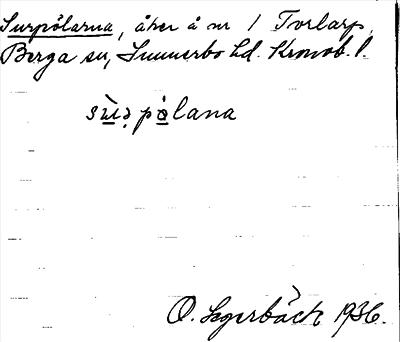 Surpölarna, åker å nr 1 Torlarp,
Berga sn, Sunnerbo hd. Kronob. l.
sὺ̲ə̣ pȯ̲lana
O. Lagerbäck 1936.